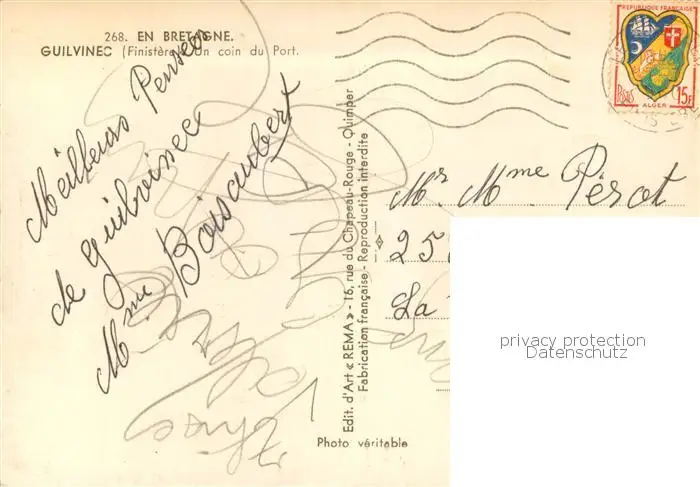 268. EN BRETAGNE.
GUILVINEC (Finistère) Un coin du Port.
Meilleures Pensées
de guilvinec
Mme Boisaubert
Edit. d'Art « REMA » - 16, rue du Chapeau-Rouge - Quimper
Fabrication française - Reproduction interdite
Photo véritable
REPUBLIQUE FRANÇAISE
POSTES 15F
ALGER
Mr Mme Pérot
25
La
privacy protection
Datenschutz